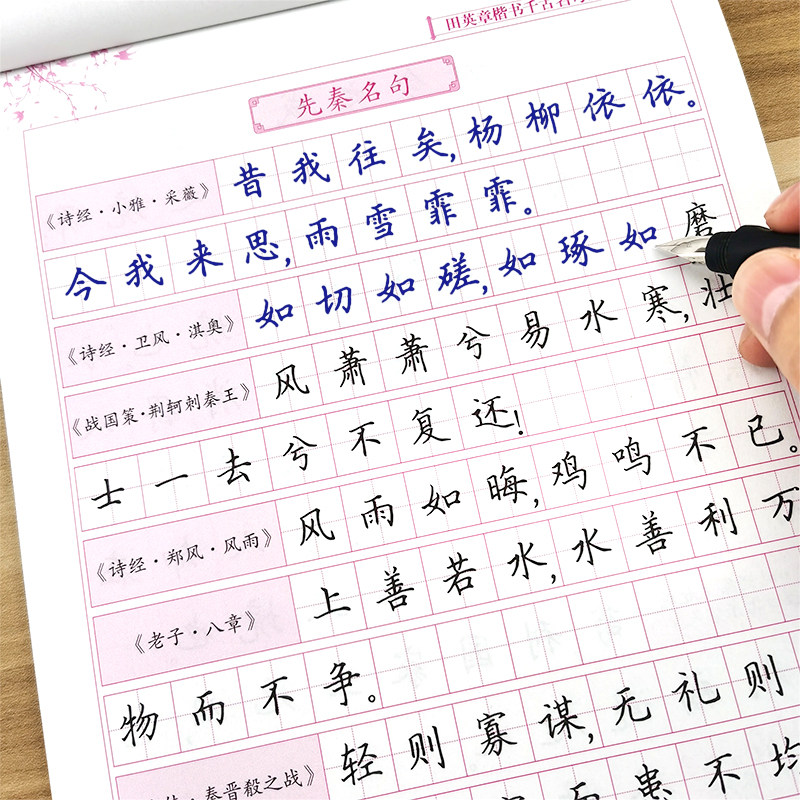 田英章楷书千古名
先秦名句
《诗经·小雅·采薇》 昔我往矣,杨柳依依。
今我来思,雨雪霏霏。
《诗经·卫风·淇奥》 如切如磋,如琢如磨
《战国策·荆轲刺秦王》 风萧萧兮易水寒,壮
士一去兮不复还!
《诗经·郑风·风雨》 风雨如晦,鸡鸣不已。
《老子·八章》 上善若水,水善利万
物而不争。
秦晋殽之战》 轻则寡谋,无礼则
患不均